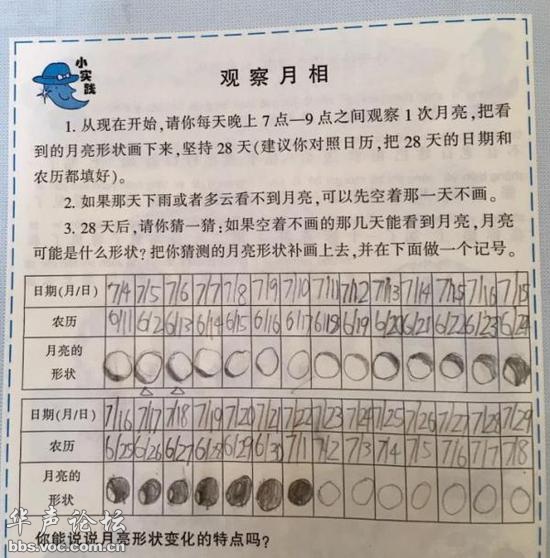 小实践
观察月相
1. 从现在开始,请你每天晚上7点—9点之间观察1次月亮,把看
到的月亮形状画下来,坚持28天(建议你对照日历,把28天的日期和
农历都填好)。
2. 如果那天下雨或者多云看不到月亮,可以先空着那一天不画。
3. 28天后,请你猜一猜:如果空着不画的那几天能看到月亮,月亮
可能是什么形状?把你猜测的月亮形状补画上去,并在下面做一个记号。
日期(月/日) 7/4 7/5 7/6 7/7 7/8 7/9 7/10 7/11 7/12 7/13 7/14 7/15 7/16 7/15
农历 6/11 6/2 6/13 6/14 6/15 6/16 6/17 6/18 6/19 6/20 6/21 6/22 6/23 6/24
月亮的
形状
日期(月/日) 7/16 7/17 7/18 7/19 7/20 7/21 7/22 7/23 7/24 7/25 7/26 7/27 7/28 7/29
农历 6/25 6/26 6/27 6/28 6/29 6/30 7/1 7/2 7/3 7/4 7/5 7/6 7/7 7/8
月亮的
形状
你能说说月亮形状变化的特点吗?
华声论坛
bbs.voc.com.cn